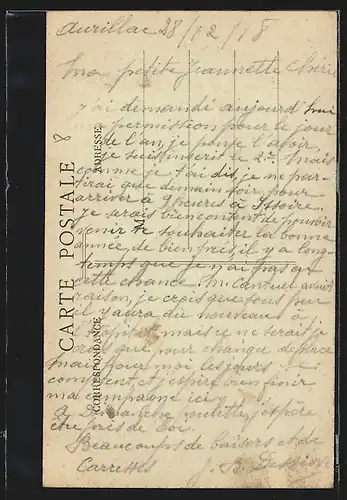 Aurillac 28/12/18
Ma petite Jeannette Chérie
j'ai demandé aujourd'hui
permission pour le jour
de l'an, je pense l'avoir,
je suis inscrit le 2me. Mais
comme je t'ai dit, je ne par-
tirai que demain soir pour
arriver à 9 heures à Issoire.
je serais bien content de pouvoir
venir te souhaiter la bonne
année, de bien près, il y a long-
temps que je n'ai pas eu
cette chance. avait
raison, je crois que tous peu
il y aura du nouveau à
l'hopital, mais ce ne serait je
crois que pour changer de place
mais pour moi les jours se
comptent, et j'espère bien finir
ma campagne ici
A Dimanche poulette, j'espère
être près de toi.
Beaucoups de baisers et de
Carresses
J. B.
CARTE POSTALE
CORRESPONDANCE
ADRESSE